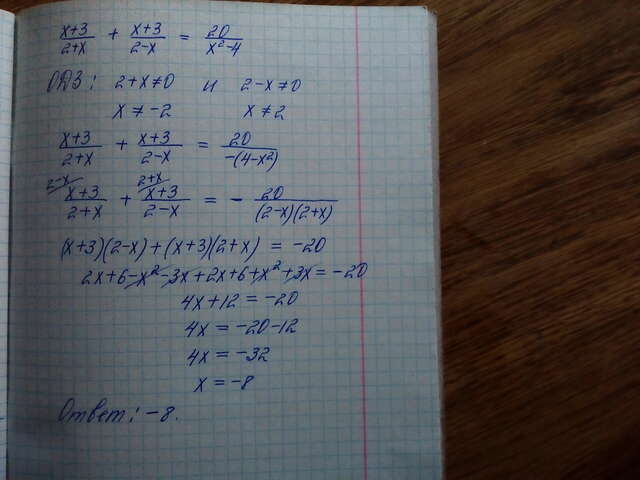 x+3/2+x + x+3/2-x = 20/x²-4
ОДЗ: 2+x≠0 и 2-x≠0
x≠-2 x≠2
x+3/2+x + x+3/2-x = 20/-(4-x²)
2-x/ x+3/2+x + 2+x/ x+3/2-x = - 20/(2-x)(2+x)
(x+3)(2-x)+(x+3)(2+x) = -20
2x+6-x²-3x+2x+6+x²+3x=-20
4x+12=-20
4x=-20-12
4x=-32
x=-8
Ответ: -8.